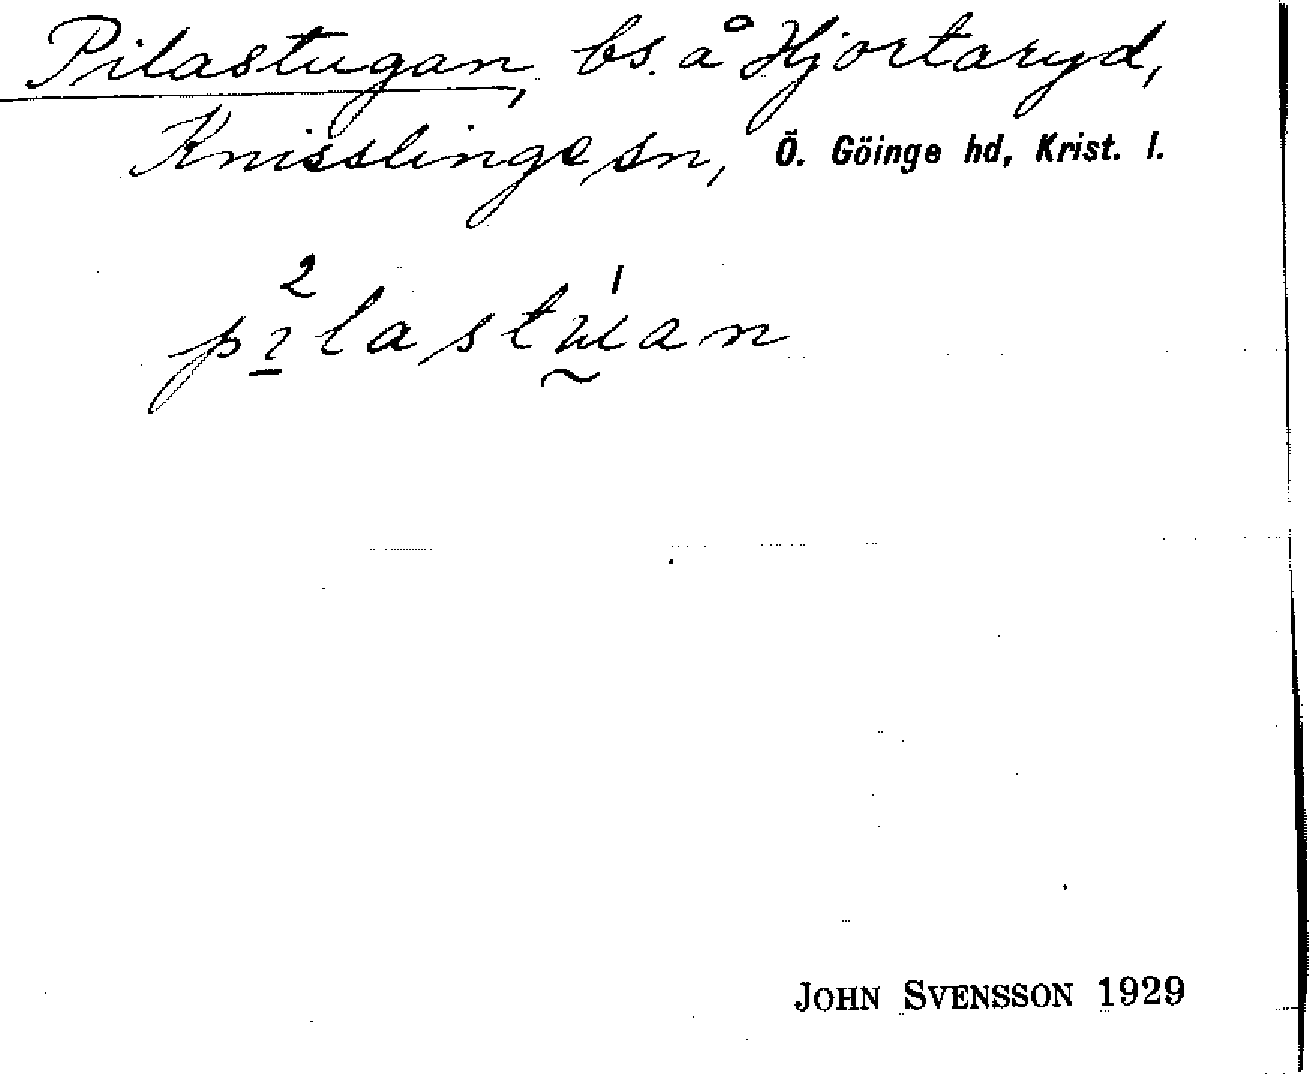 Pilastugan, bs. å Hjortaryd,
Knisslinge sn, Ö. Göinge hd, Krist. l.
JOHN SVENSSON 1929